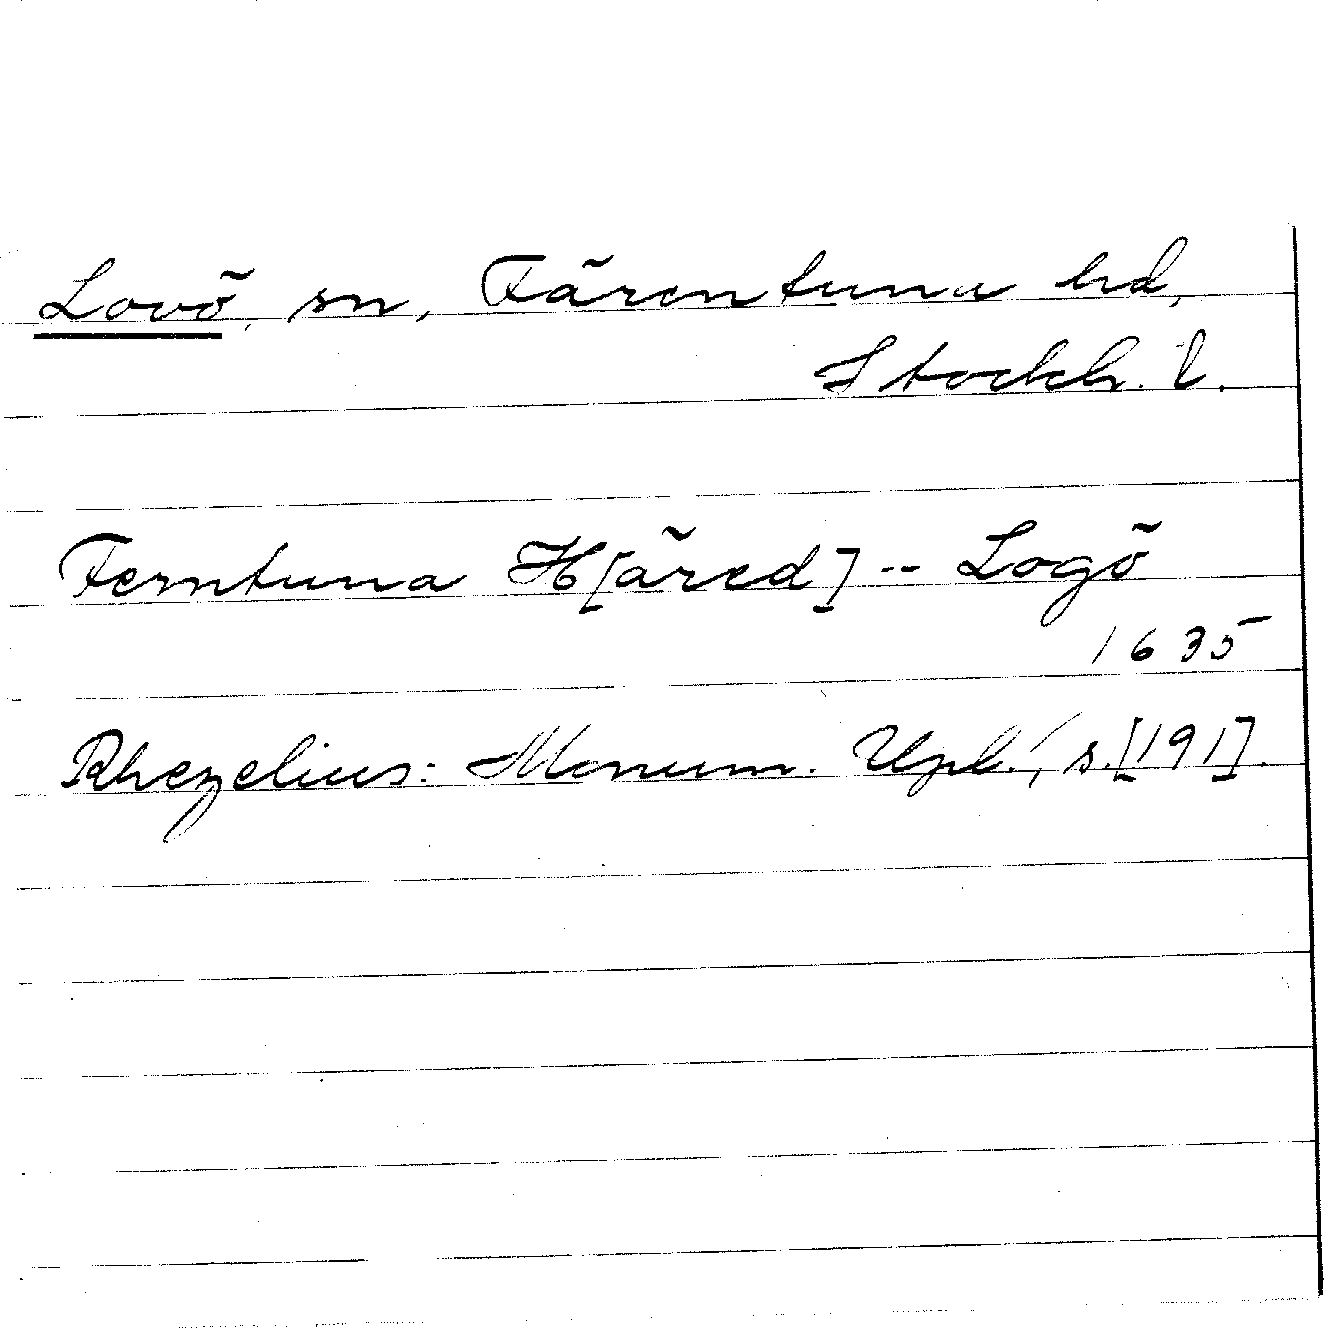 Lovö, sn, Färentuna hd,
Stockh. l.
Ferntuna H[äred] -- Logö
1635
Rhezelius: Monum. Upl., s.[191].